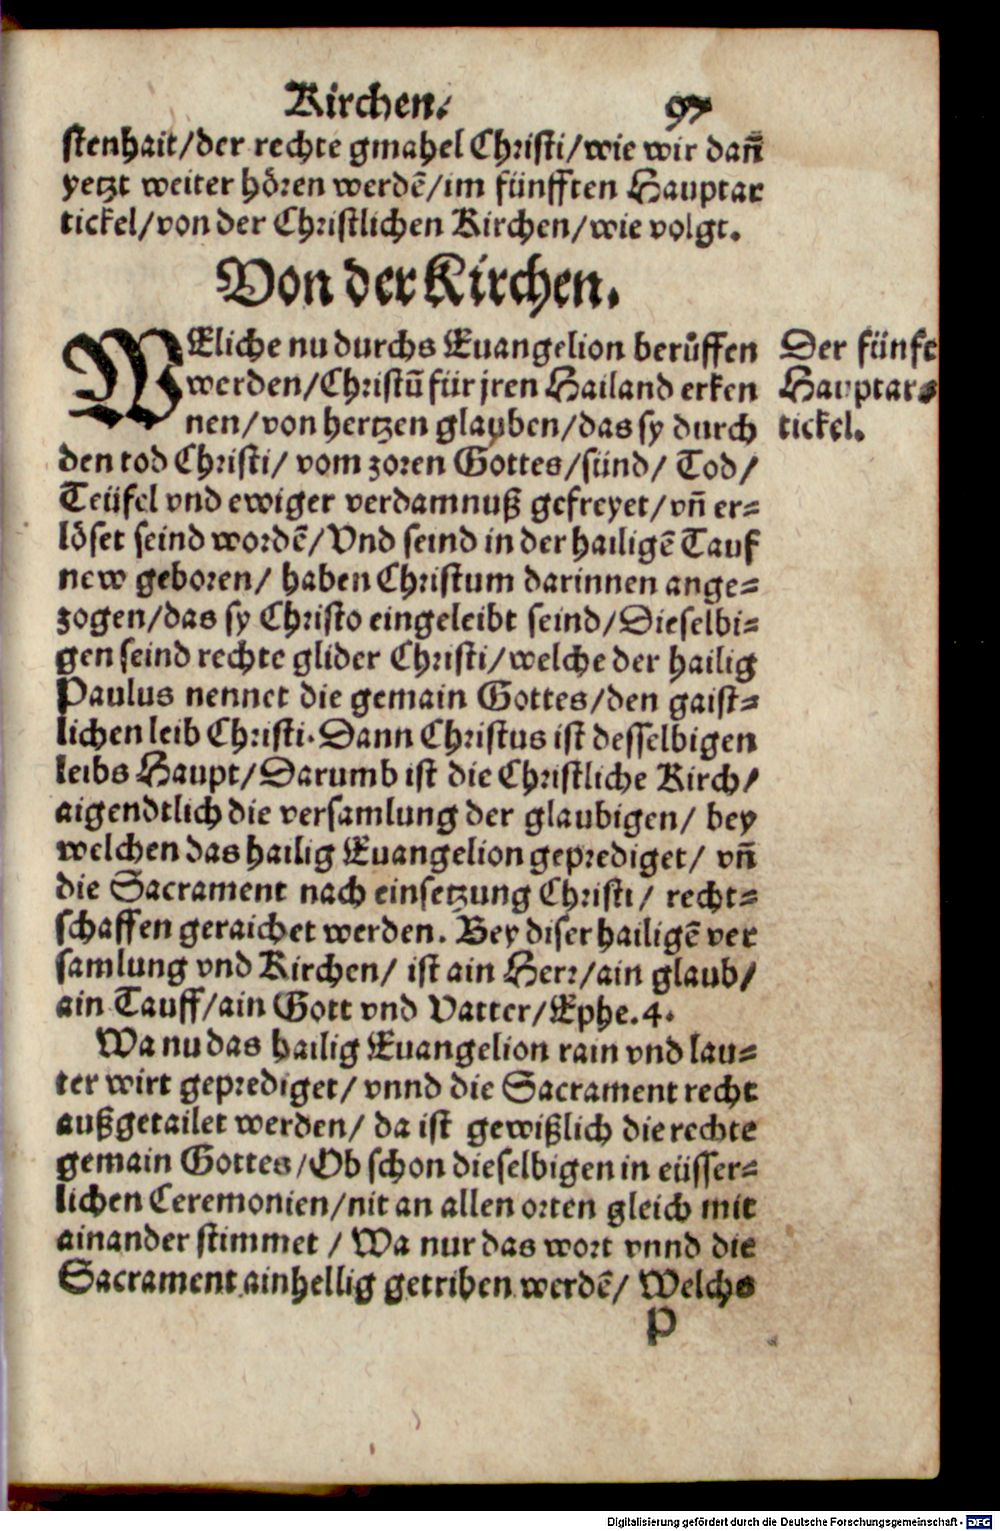 Kirchen. 97
stenhait/der rechte gmahel Christi/wie wir dañ
yetzt weiter hören werdẽ/im fünfften Hauptar
tickel/von der Christlichen Kirchen/wie volgt.
Von der Kirchen.
WEliche nu durchs Euangelion berůffen
werden/Christũ für jren Hailand erken
nen/von hertzen glauben/das sy durch
den tod Christi/ vom zoren Gottes/sünd/ Tod/
Teüfel vnd ewiger verdamnuß gefreyet/vñ er-
löset seind wordẽ/Vnd seind in der hailigẽ Tauf
new geboren/ haben Christum darinnen ange-
zogen/das sy Christo eingeleibt seind/Dieselbi-
gen seind rechte glider Christi/welche der hailig
Paulus nennet die gemain Gottes/den gaist-
lichen leib Christi. Dann Christus ist desselbigen
leibs Haupt/Darumb ist die Christliche Kirch/
aigendtlich die versamlung der glaubigen/ bey
welchen das hailig Euangelion geprediget/ vñ
die Sacrament nach einsetzung Christi/ recht-
schaffen geraichet werden. Bey diser hailigẽ ver
samlung vnd Kirchen/ ist ain Herr/ain glaub/
ain Tauff/ain Gott vnd Vatter/Ephe.4.
Wa nu das hailig Euangelion rain vnd lau-
ter wirt geprediget/ vnnd die Sacrament recht
außgetailet werden/ da ist gewißlich die rechte
gemain Gottes/Ob schon dieselbigen in eüsser-
lichen Ceremonien/nit an allen orten gleich mit
ainander stimmet / Wa nur das wort vnnd die
Sacrament ainhellig getriben werdẽ/ Welchs
P
Der fünft
Hauptar-
tickel.
Digitalisierung gefördert durch die Deutsche Forschungsgemeinschaft - DFG